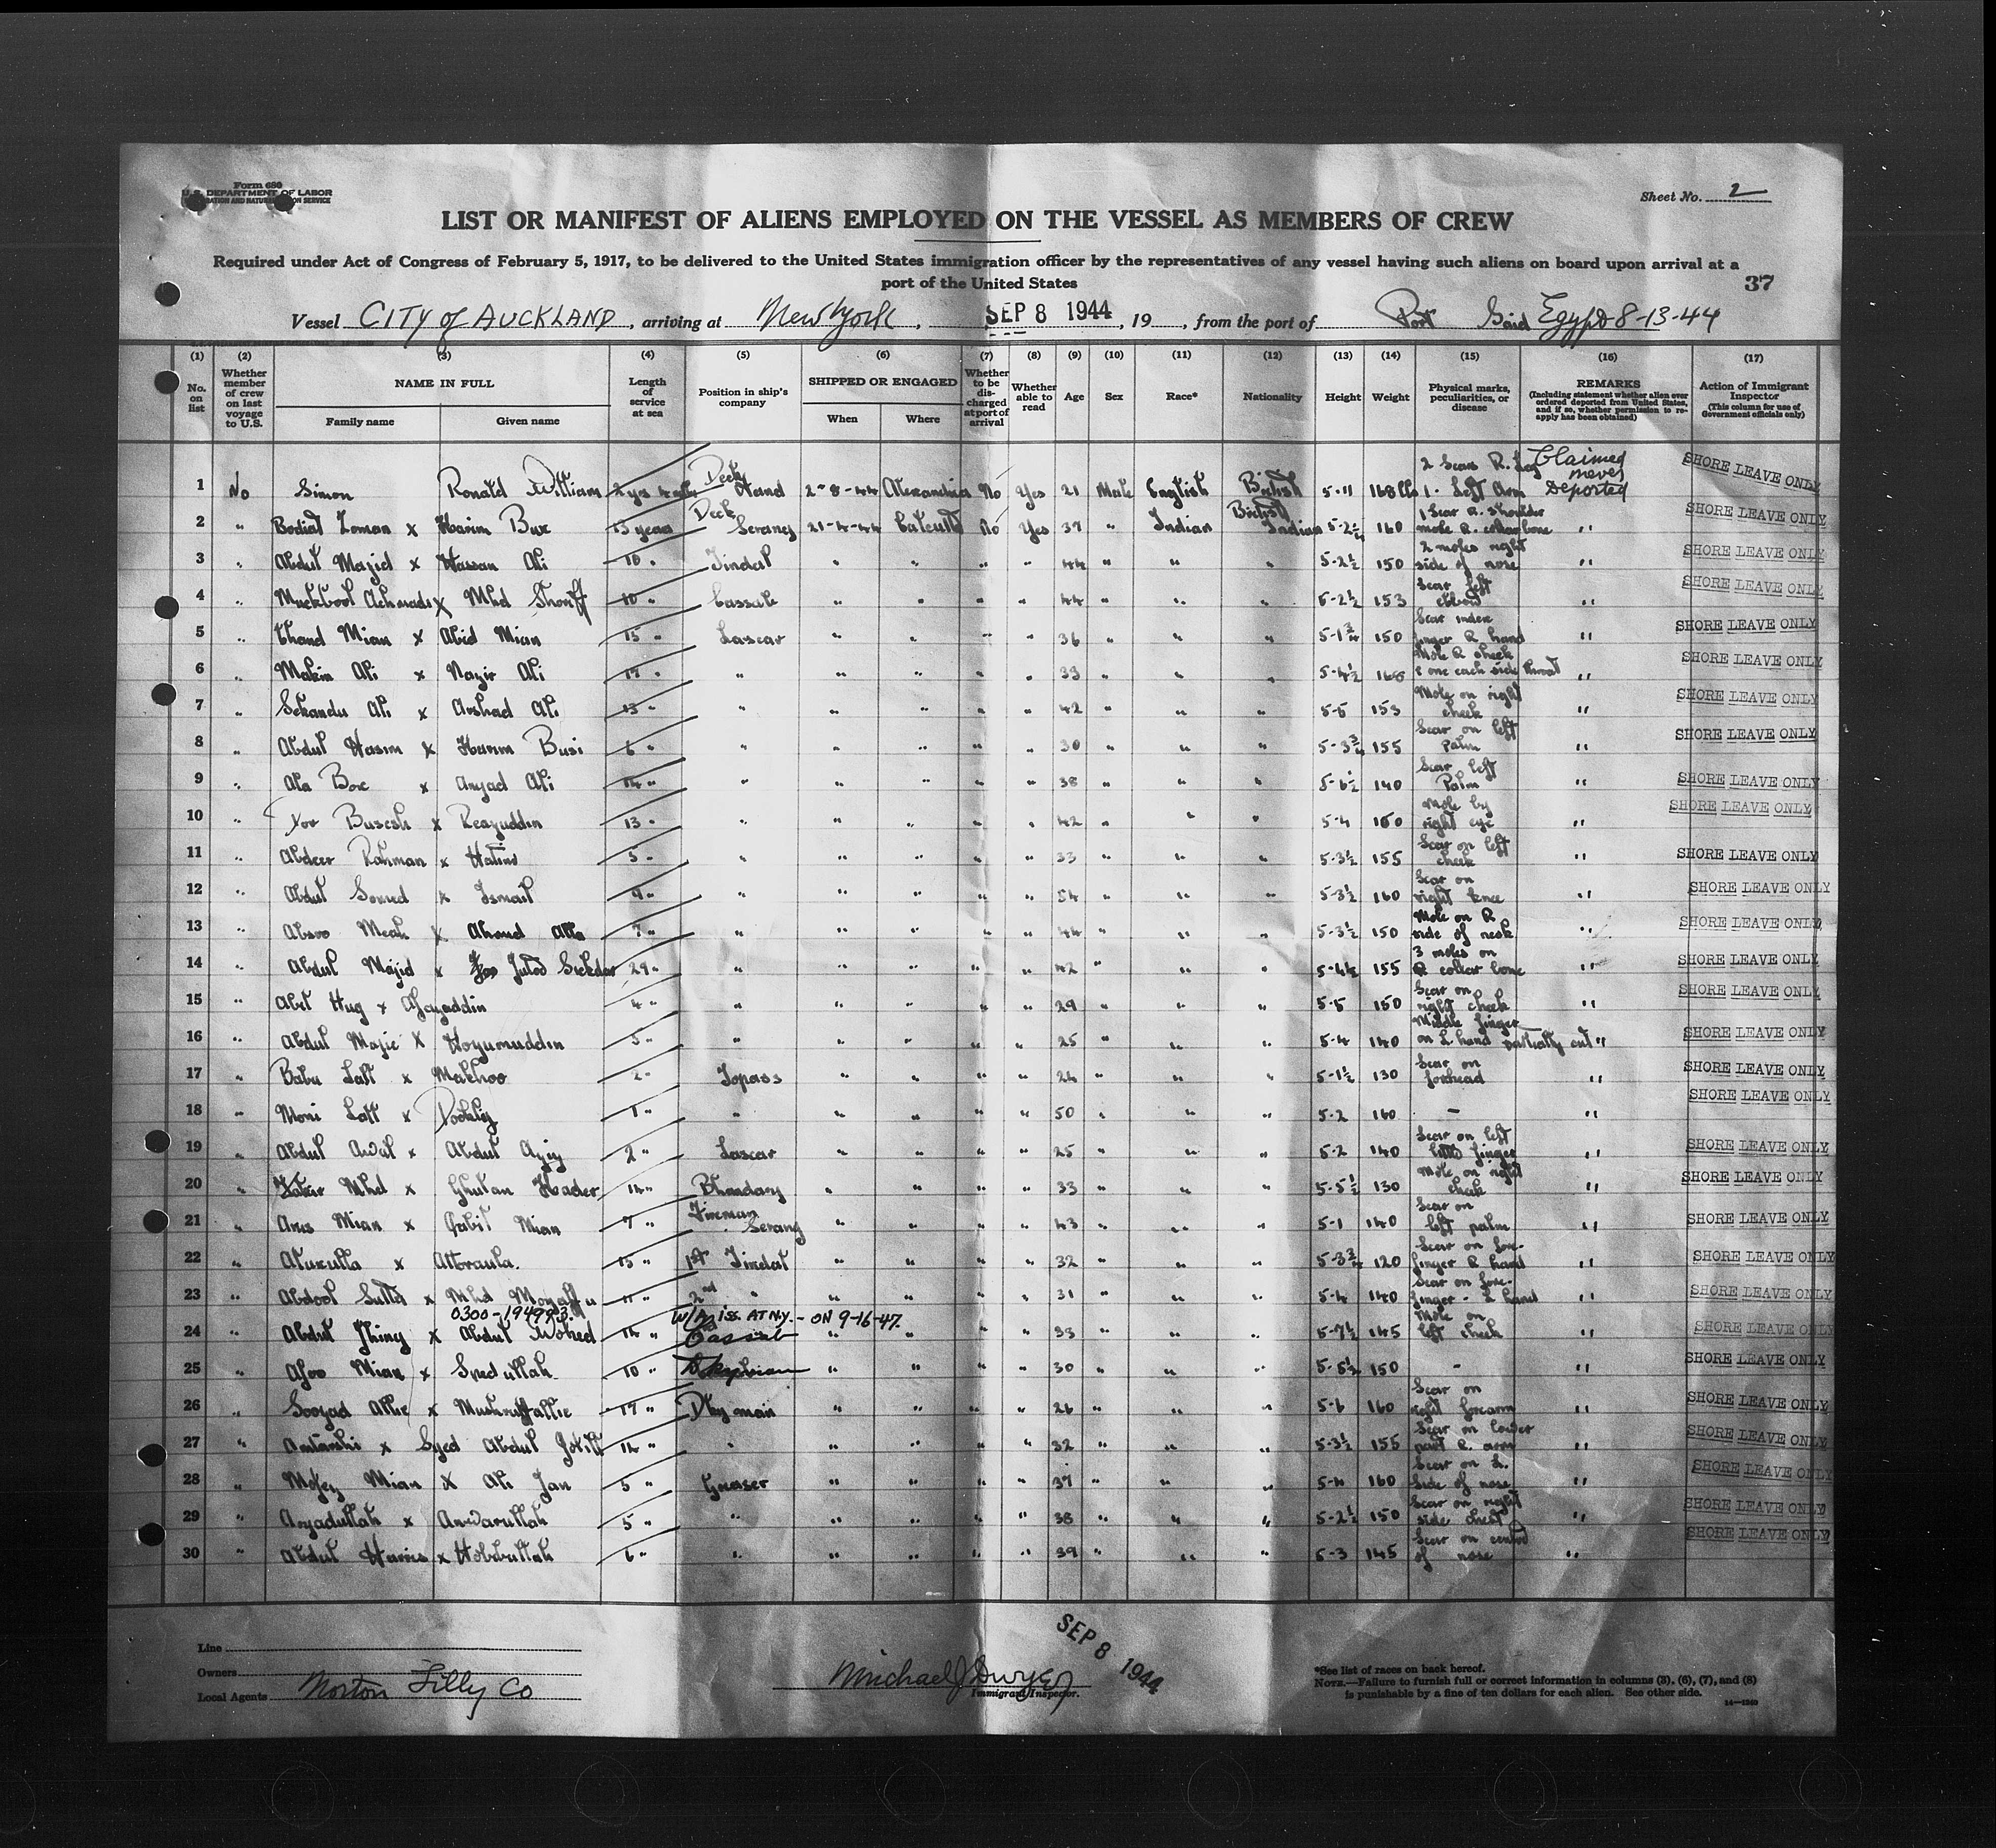 Form 680
U.S. DEPARTMENT OF LABOR
Sheet No. 2
LIST OR MANIFEST OF ALIENS EMPLOYED ON THE VESSEL AS MEMBERS OF CREW
Required under Act of Congress of February 5, 1917, to be delivered to the United States immigration officer by the representatives of any vessel having such aliens on board upon arrival at a
port of the United States
37
Vessel CITY of AUCKLAND, arriving at New York, SEP 8 1944, 19, from the port of Port Said Egypt 8-13-44
(1) (2) (3) (4) (5) (6) (7) (8) (9) (10) (11) (12) (13) (14) (15) (16) (17)
No. on list Whether member of crew on last voyage to U.S. NAME IN FULL Family name Given name Length of service at sea Position in ship's company SHIPPED OR ENGAGED When Where Whether to be discharged at port of arrival Whether able to read Age Sex Race* Nationality Height Weight Physical marks, peculiarities, or disease REMARKS (Including statement whether alien ever ordered deported from United States, and if so, whether permission to re-apply has been obtained) Action of Immigrant Inspector (This column for use of Government officials only)
1 No Simon Ronald William 2 yrs Deck Hand 2-8-44 Alexandria No Yes 21 Male English British 5-11 168 lbs 2 Scars R. Leg 1. Left Arm Claimed never Deported SHORE LEAVE ONLY
2 " x Karim Bux 13 years Deck Serang 21-4-44 Calcutta No Yes 37 " Indian British Indian 160 1 Scar R. shoulder mole R. collar bone " SHORE LEAVE ONLY
3 " Abdul Majid x Hassan Ali 18 " Tindal " " " " 44 " " " 5-2½ 150 2 moles right side of nose " SHORE LEAVE ONLY
4 " x Mhd Shariff 10 " Cassab " " " " 44 " " " 5-2½ 153 Scar left elbow " SHORE LEAVE ONLY
5 " Chand Mian x Abid Mian 15 " Lascar " " " " 36 " " " 5-1¾ 150 Scar index finger R hand " SHORE LEAVE ONLY
6 " Makim Ali x Nazir Ali 17 " " " " " " 33 " " " 5-4½ 168 Mole R cheek & one each side throat " SHORE LEAVE ONLY
7 " Sekandu Ali x Arshad Ali 13 " " " " " " 42 " " " 5-5 153 Mole on right cheek " SHORE LEAVE ONLY
8 " Abdul Hasim x Karim Busi 6 " " " " " " 30 " " " 5-3¾ 155 Scar on left palm " SHORE LEAVE ONLY
9 " Ala Box x Amjad Ali 14 " " " " " " 38 " " " 5-6½ 140 Scar left Palm " SHORE LEAVE ONLY
10 " x Reazuddin 13 " " " " " " 42 " " " 5-4 Mole by right eye " SHORE LEAVE ONLY
11 " Rahman x 5 " " " " " " 33 " " " 5-3½ 155 Scar on left cheek " SHORE LEAVE ONLY
12 " Abdul Somed x Ismail 9 " " " " " " 54 " " " 5-3½ 160 Scar on right knee " SHORE LEAVE ONLY
13 " x 7 " " " " " " 44 " " " 5-3½ 150 Mole on R side of neck " SHORE LEAVE ONLY
14 " Abdul Majid x Sickdar 29 " " " " " " 42 " " " 155 3 moles on R collar bone " SHORE LEAVE ONLY
15 " Abul Hug x 4 " " " " " " 29 " " " 5-5 150 Scar on right cheek " SHORE LEAVE ONLY
16 " Abdul Majie x 5 " " " " " " 25 " " " 5-4 140 Middle finger on L hand partially cut " SHORE LEAVE ONLY
17 " Babu Lall x Makhoo 2 " Topass " " " " " " " 5-1½ 130 Scar on forehead " SHORE LEAVE ONLY
18 " Moni Lall x 1 " " " " " " 50 " " " 5-2 160 - " SHORE LEAVE ONLY
19 " Abdul Awal x Abdul 2 " Lascar " " " " 25 " " " 5-2 140 Scar on left little finger " SHORE LEAVE ONLY
20 " Mhd x Kader 14 " Bhandary " " " " 33 " " " 5-5½ 130 Mole on right cheek " SHORE LEAVE ONLY
21 " Anis Mian x Mian 7 " Fireman Serang " " " " 43 " " " 5-1 140 Scar on left palm " SHORE LEAVE ONLY
22 " x Attoraula. 13 " 1st Tindal " " " " 32 " " " 5-3¾ 120 Scar on fore-finger R hand " SHORE LEAVE ONLY
23 " x Mhd 11 " 2nd " " " " " 31 " " " 5-4 140 Scar on fore-finger - L hand " SHORE LEAVE ONLY
0300-194993. W/A ISS. AT N.Y. - ON 9-16-47.
24 " Abdul x Abdul Wohed 14 " Cassab " " " " 33 " " " 5-7½ 145 Mole on left cheek " SHORE LEAVE ONLY
25 " Mian x 10 " " " " " 30 " " " 5-5½ 150 - " SHORE LEAVE ONLY
26 " x 17 " " " " " 26 " " " 5-6 160 Scar on right forearm " SHORE LEAVE ONLY
27 " x Syed Abdul 14 " " " " " " 32 " " " 5-3½ 155 Scar on lower part R. arm " SHORE LEAVE ONLY
28 " Mian x Ali Jan 5 " Greaser " " " " 37 " " " 160 Scar on L. side of nose " SHORE LEAVE ONLY
29 " x Anwarullah 5 " " " " " " 38 " " " 5-2½ 150 Scar on right side chest " SHORE LEAVE ONLY
30 " Abdul x Hobibullah 6 " " " " " " 39 " " " 5-3 145 Scar on of nose " SHORE LEAVE ONLY
Line
Owners
Local Agents Norton Lilly Co
Michael J Dwyer
Immigrant Inspector.
SEP 8 1944
*See list of races on back hereof.
NOTE.—Failure to furnish full or correct information in columns (3), (6), (7), and (8)
is punishable by a fine of ten dollars for each alien. See other side.